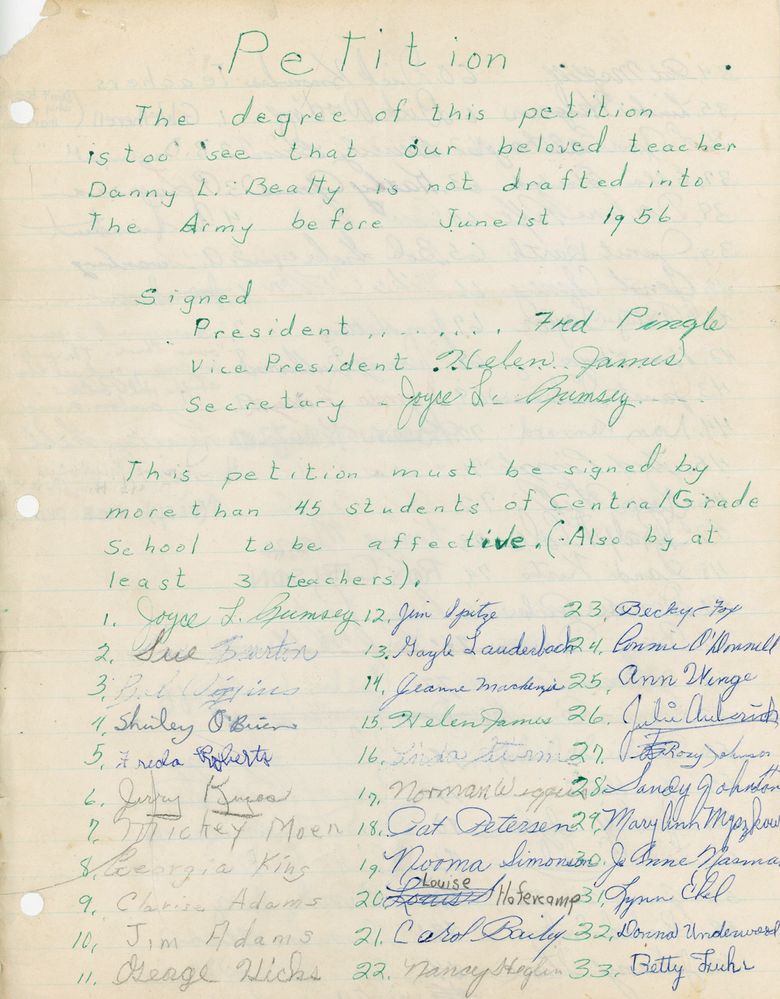 Petition
The degree of this petition
is too see that our beloved teacher
Danny L. Beatty is not drafted into
The Army before June 1st 1956
Signed
President........ Fred Pingle
Vice President Helen James
Secretary Joyce L. Rumsey
This petition must be signed by
more than 45 students of Central Grade
School to be affective. (Also by at
least 3 teachers).
1. Joyce L. Rumsey
2. Sue Burton
3. Bob Wiggins
4. Shirley O'Brien
5. Freda Roberts
6. Jerry
7. Mickey Moen
8. Georgia King
9. Adams
10, Jim Adams
11. George Hicks
12. Jim Spitze
13. Gayle Lauderbach
14. Jeanne Mackenzie
15. Helen James
16. Linda
17. Norman Wiggins
18. Pat Petersen
19. Nooma Simonson
20. Louise Hofercamp
21. Carol Baily
22. Nancy
23. Becky Fox
24. Connie O'Donnell
25. Ann Winge
26. Julie
27. Rosy Johnson
28. Sandy Johnston
29. Mary Ann
30. Jo Anne
31. Lynn
32. Donna Underwood
33. Betty Fuhr